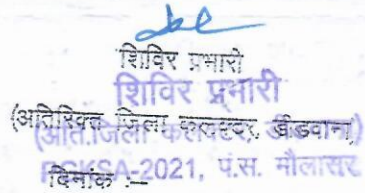 शिविर प्रभारी
शिविर प्रभारी
(अतिरिक्त जिला कलक्टर, डीडवाना)
(अति.जिला कलक्टर,
PGKSA-2021, पं.स. मौलासर
दिनांक :–